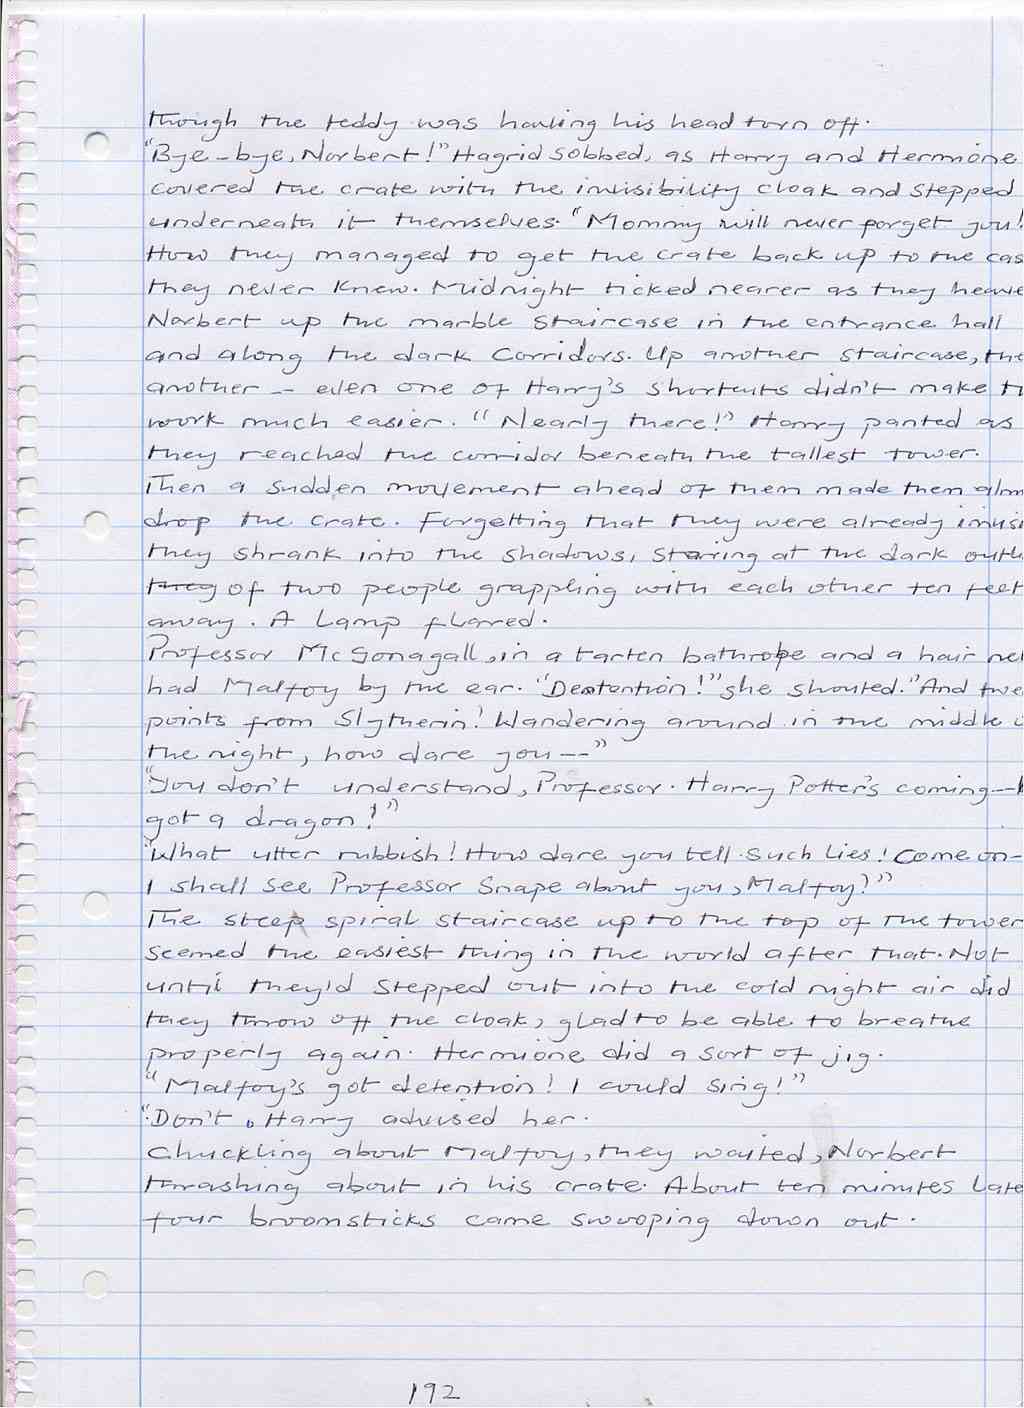 though the teddy was having his head torn off.
"Bye-bye, Norbert!" Hagrid sobbed, as Harry and Hermione
covered the crate with the invisibility cloak and stepped
underneath it themselves. "Mommy will never forget you!
How they managed to get the crate back up to the cas
they never knew. Midnight ticked nearer as they heave
Norbert up the marble staircase in the entrance hall
and along the dark corridors. Up another staircase, the
another - even one of Harry's shortcuts didn't make t
work much easier. "Nearly there!" Harry panted as
they reached the corridor beneath the tallest tower.
Then a sudden movement ahead of them made them alm
drop the crate. Forgetting that they were already invisi
they shrank into the shadows, staring at the dark outli
they of two people grappling with each other ten feet
away. A Lamp flared.
Professor McGonagall, in a tarten bathrobe and a hair net
had Malfoy by the ear. "Detention!" she shouted. "And twe
points from Slytherin! Wandering around in the middle o
the night, how dare you --"
"You don't understand, Professor. Harry Potter's coming--h
got a dragon!"
"What utter rubbish! How dare you tell such Lies! Come on-
I shall see Professor Snape about you, Malfoy!"
The steep spiral staircase up to the top of the tower
seemed the easiest thing in the world after that. Not
until they'd stepped out into the cold night air did
they throw off the cloak, glad to be able to breathe
properly again. Hermione did a sort of jig.
"Malfoy's got detention! I could sing!"
"Don't, Harry advised her.
Chuckling about Malfoy, they waited, Norbert
thrashing about in his crate. About ten minutes Late
four broomsticks came swooping down out.
192